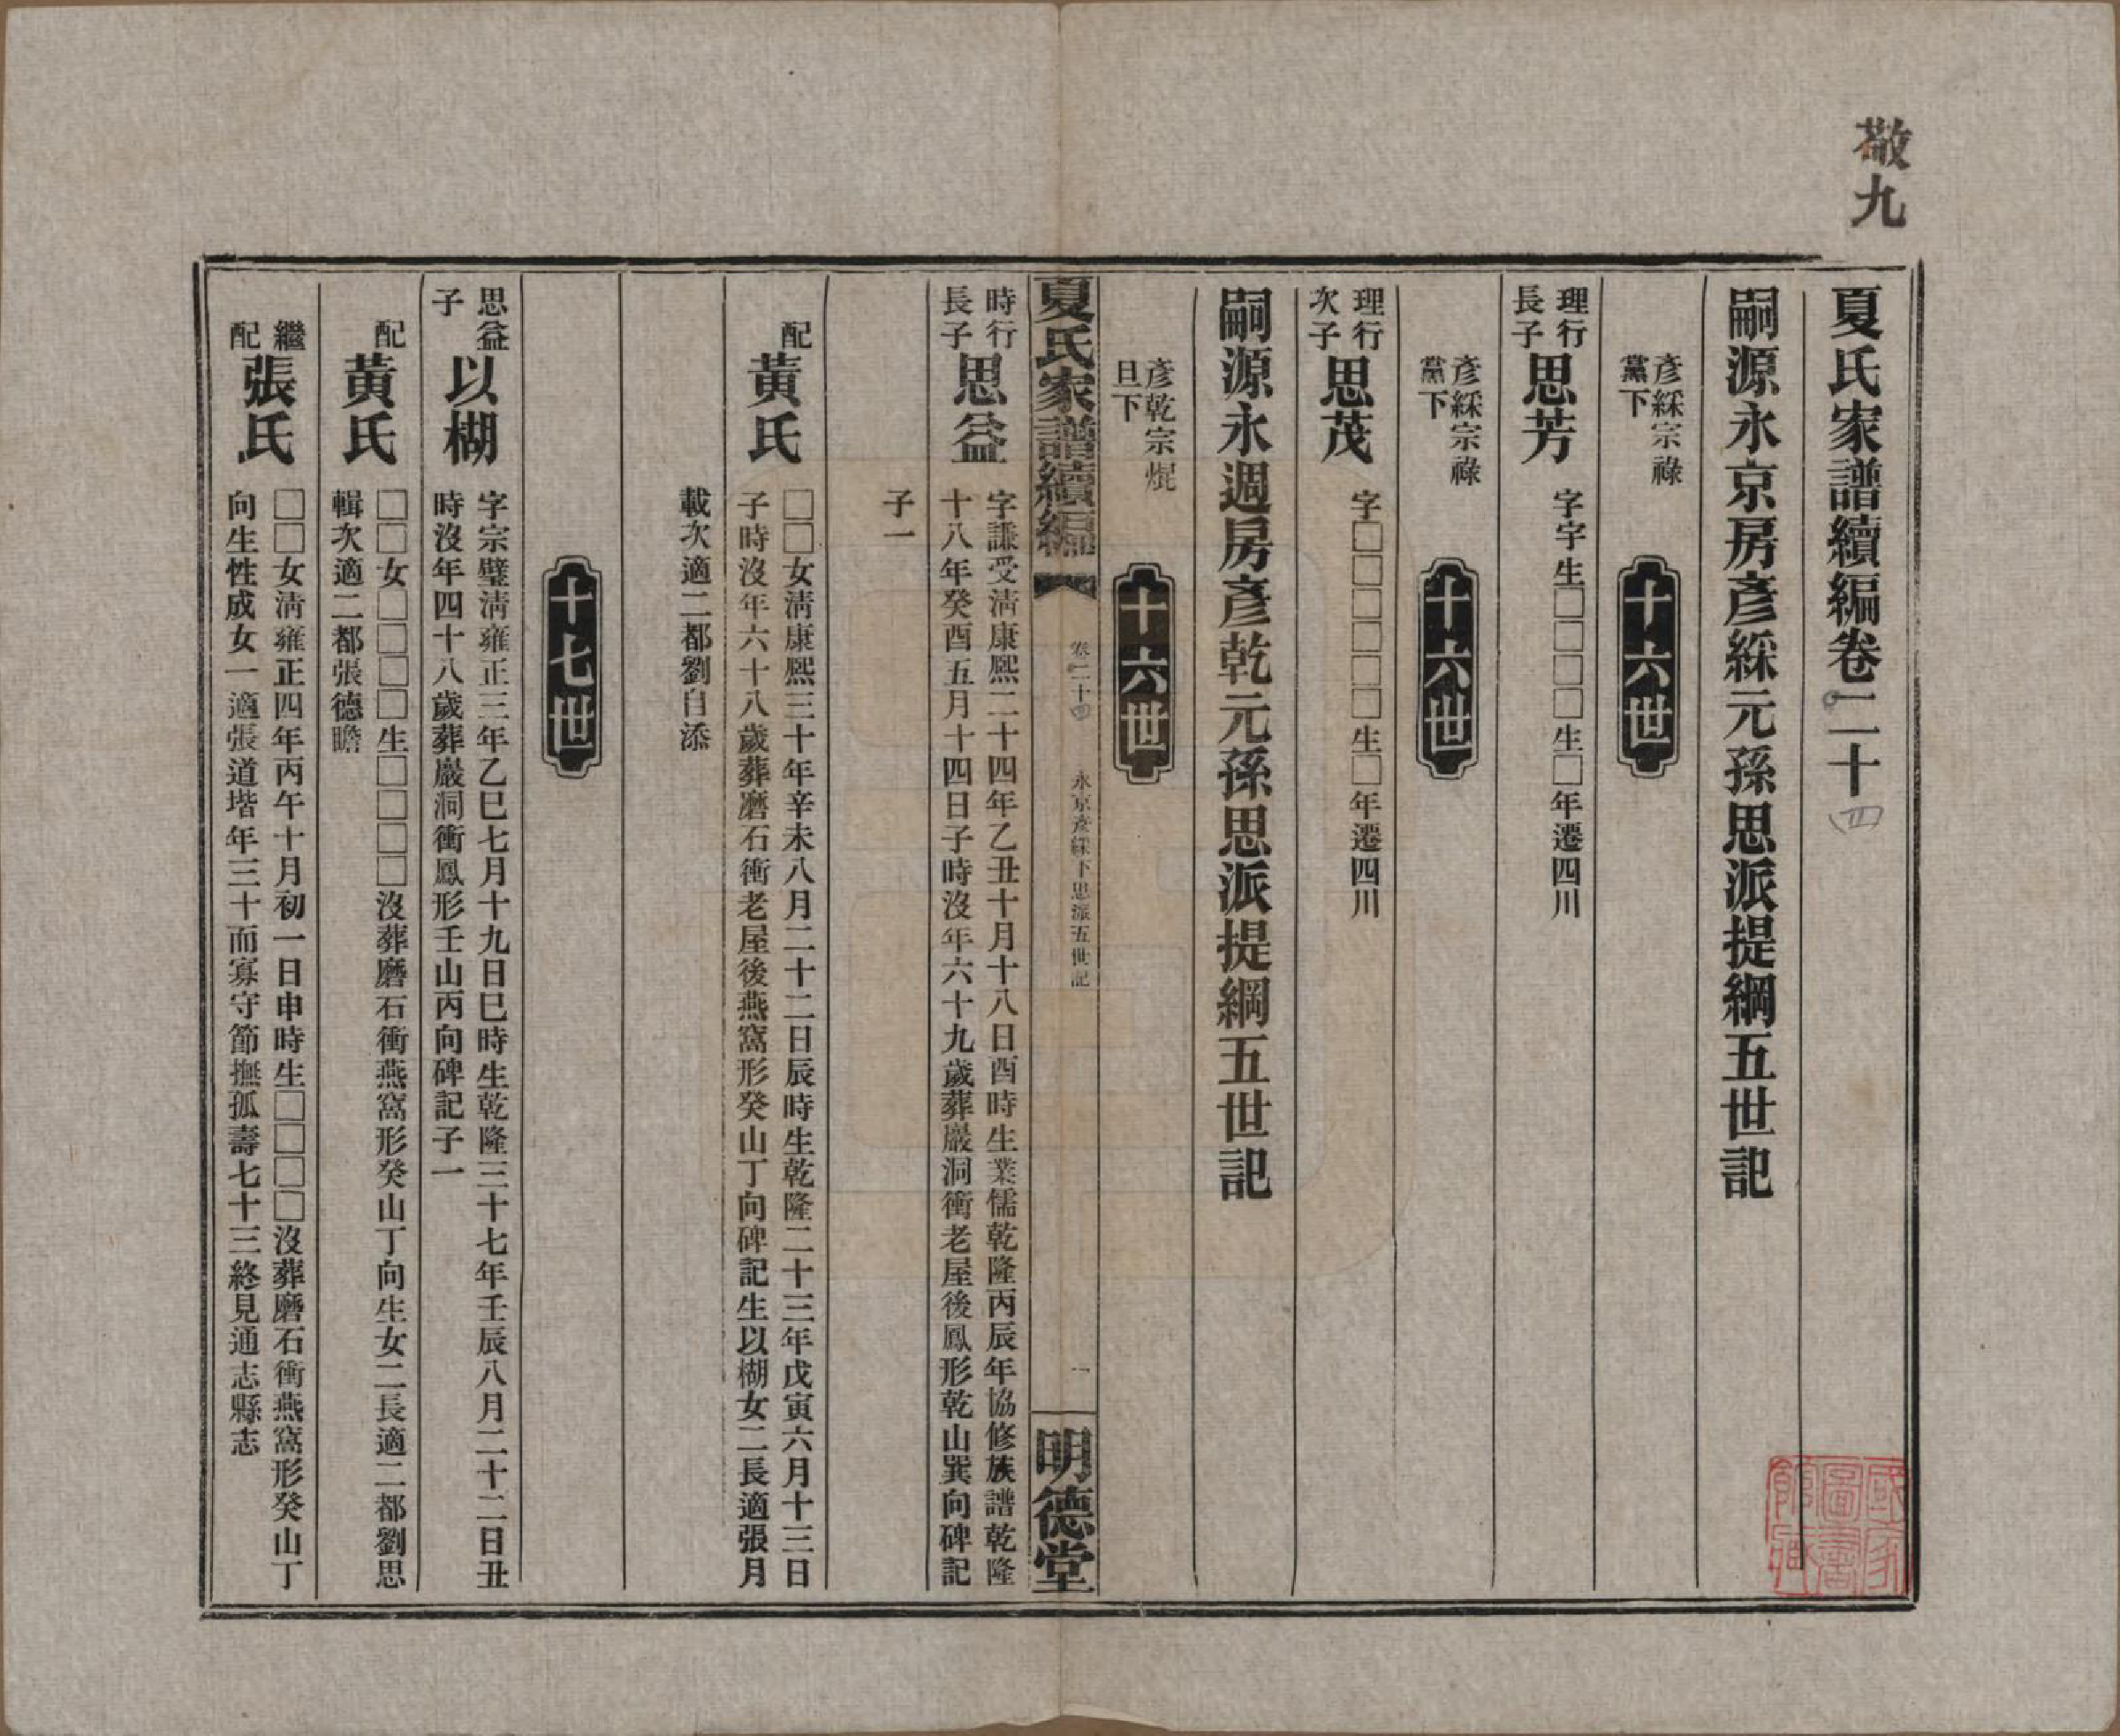 敬九
夏氏家譜續編卷二十四
嗣源永京房彥綵元孫思派提綱五世記
彥綵宗祿
黨下
十六世
理行
長子
思芳
字字生□□□□生□年遷四川
彥綵宗祿
黨下
十六世
理行
次子
思茂
字□□□□□□生□年遷四川
嗣源永週房彥乾元孫思派提綱五世記
彥乾宗焜
旦下
十六世
夏氏家譜續編
卷二十四
永京彥綵下思派五世記
一
明德堂
時行
長子
思益
字謙受淸康熙二十四年乙丑十月十八日酉時生業儒乾隆丙辰年協修族譜乾隆
十八年癸酉五月十四日子時沒年六十九歲葬巖洞衝老屋後鳳形乾山巽向碑記
子一
配
黃氏
□□女淸康熙三十年辛未八月二十二日辰時生乾隆二十三年戊寅六月十三日
子時沒年六十八歲葬磨石衝老屋後燕窩形癸山丁向碑記生以楜女二長適張月
載次適二都劉自添
十七世
思益
子
以楜
字宗璧淸雍正三年乙巳七月十九日巳時生乾隆三十七年壬辰八月二十二日丑
時沒年四十八歲葬巖洞衝鳳形壬山丙向碑記子一
配
黃氏
□□女□□□□生□□□□沒葬磨石衝燕窩形癸山丁向生女二長適二都劉思
輯次適二都張德瞻
繼
配
張氏
□□女淸雍正四年丙午十月初一日申時生□□□□沒葬磨石衝燕窩形癸山丁
向生性成女一適張道堦年三十而寡守節撫孤壽七十三終見通志縣志
國家
圖書
館藏